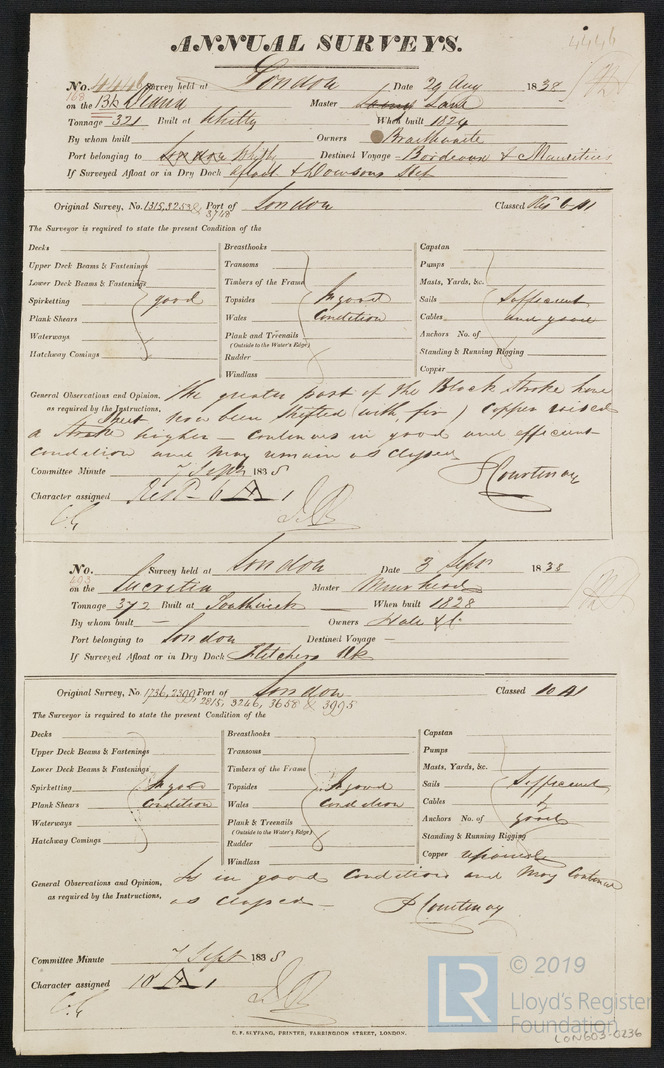 4446
ANNUAL SURVEYS.
No. 4446 Survey held at London Date 29 Aug 1838
168
on the Bk Diana Master Lamb
Tonnage 321 Built at Whitby When built 1824
By whom built Owners Braithwaite
Port belonging to London Whitby Destined Voyage Bordeaux & Mauritius
If Surveyed Afloat or in Dry Dock afloat & Dowsons Slip
Original Survey, No. 1315, 3253 & 3748 Port of London Classed A1
The Surveyor is required to state the present Condition of the
Decks
Upper Deck Beams & Fastenings
Lower Deck Beams & Fastenings
Spirketting good
Plank Shears
Waterways
Hatchway Comings
Breasthooks
Transoms
Timbers of the Frame
Topsides In good
Wales Condition
Plank and Treenails
(Outside to the Water's Edge)
Rudder
Windlass
Capstan
Pumps
Masts, Yards, &c.
Sails Sufficient
Cables and good
Anchors No. of
Standing & Running Rigging
Copper
General Observations and Opinion, The greater part of the Black Strake have
as required by the Instructions, been shifted (with fir) Copper raised
a Strake higher – Continues in good and efficient
Condition and may remain as Classed
Committee Minute 7 Sept 1838 P Courtenay
Character assigned Rest - 6 A 1
No. Survey held at London Date 3 Sept 1838
403
on the Lucretia Master Muirhead
Tonnage 372 Built at Southwick When built 1828
By whom built — Owners Hale & Co
Port belonging to London Destined Voyage —
If Surveyed Afloat or in Dry Dock Fletchers Dk
Original Survey, No. 1736, 2399, 2815, 3246, 3658 & 3995 Port of London Classed 10 A1
The Surveyor is required to state the present Condition of the
Decks
Upper Deck Beams & Fastenings
Lower Deck Beams & Fastenings
Spirketting In good
Plank Shears Condition
Waterways
Hatchway Comings
Breasthooks
Transoms
Timbers of the Frame
Topsides In good
Wales Condition
Plank & Treenails
(Outside to the Water's Edge)
Rudder
Windlass
Capstan
Pumps
Masts, Yards, &c.
Sails Sufficient
Cables &
Anchors No. of good
Standing & Running Rigging
Copper repaired
General Observations and Opinion, Is in good Condition and may Continue
as required by the Instructions, as Classed – P Courtenay
Committee Minute 7 Sept 1838
Character assigned 10 A 1
C. F. SEYFANG, PRINTER, FARRINGDON STREET, LONDON.
LR
© 2019
Lloyd's Register
Foundation
LON603-0236